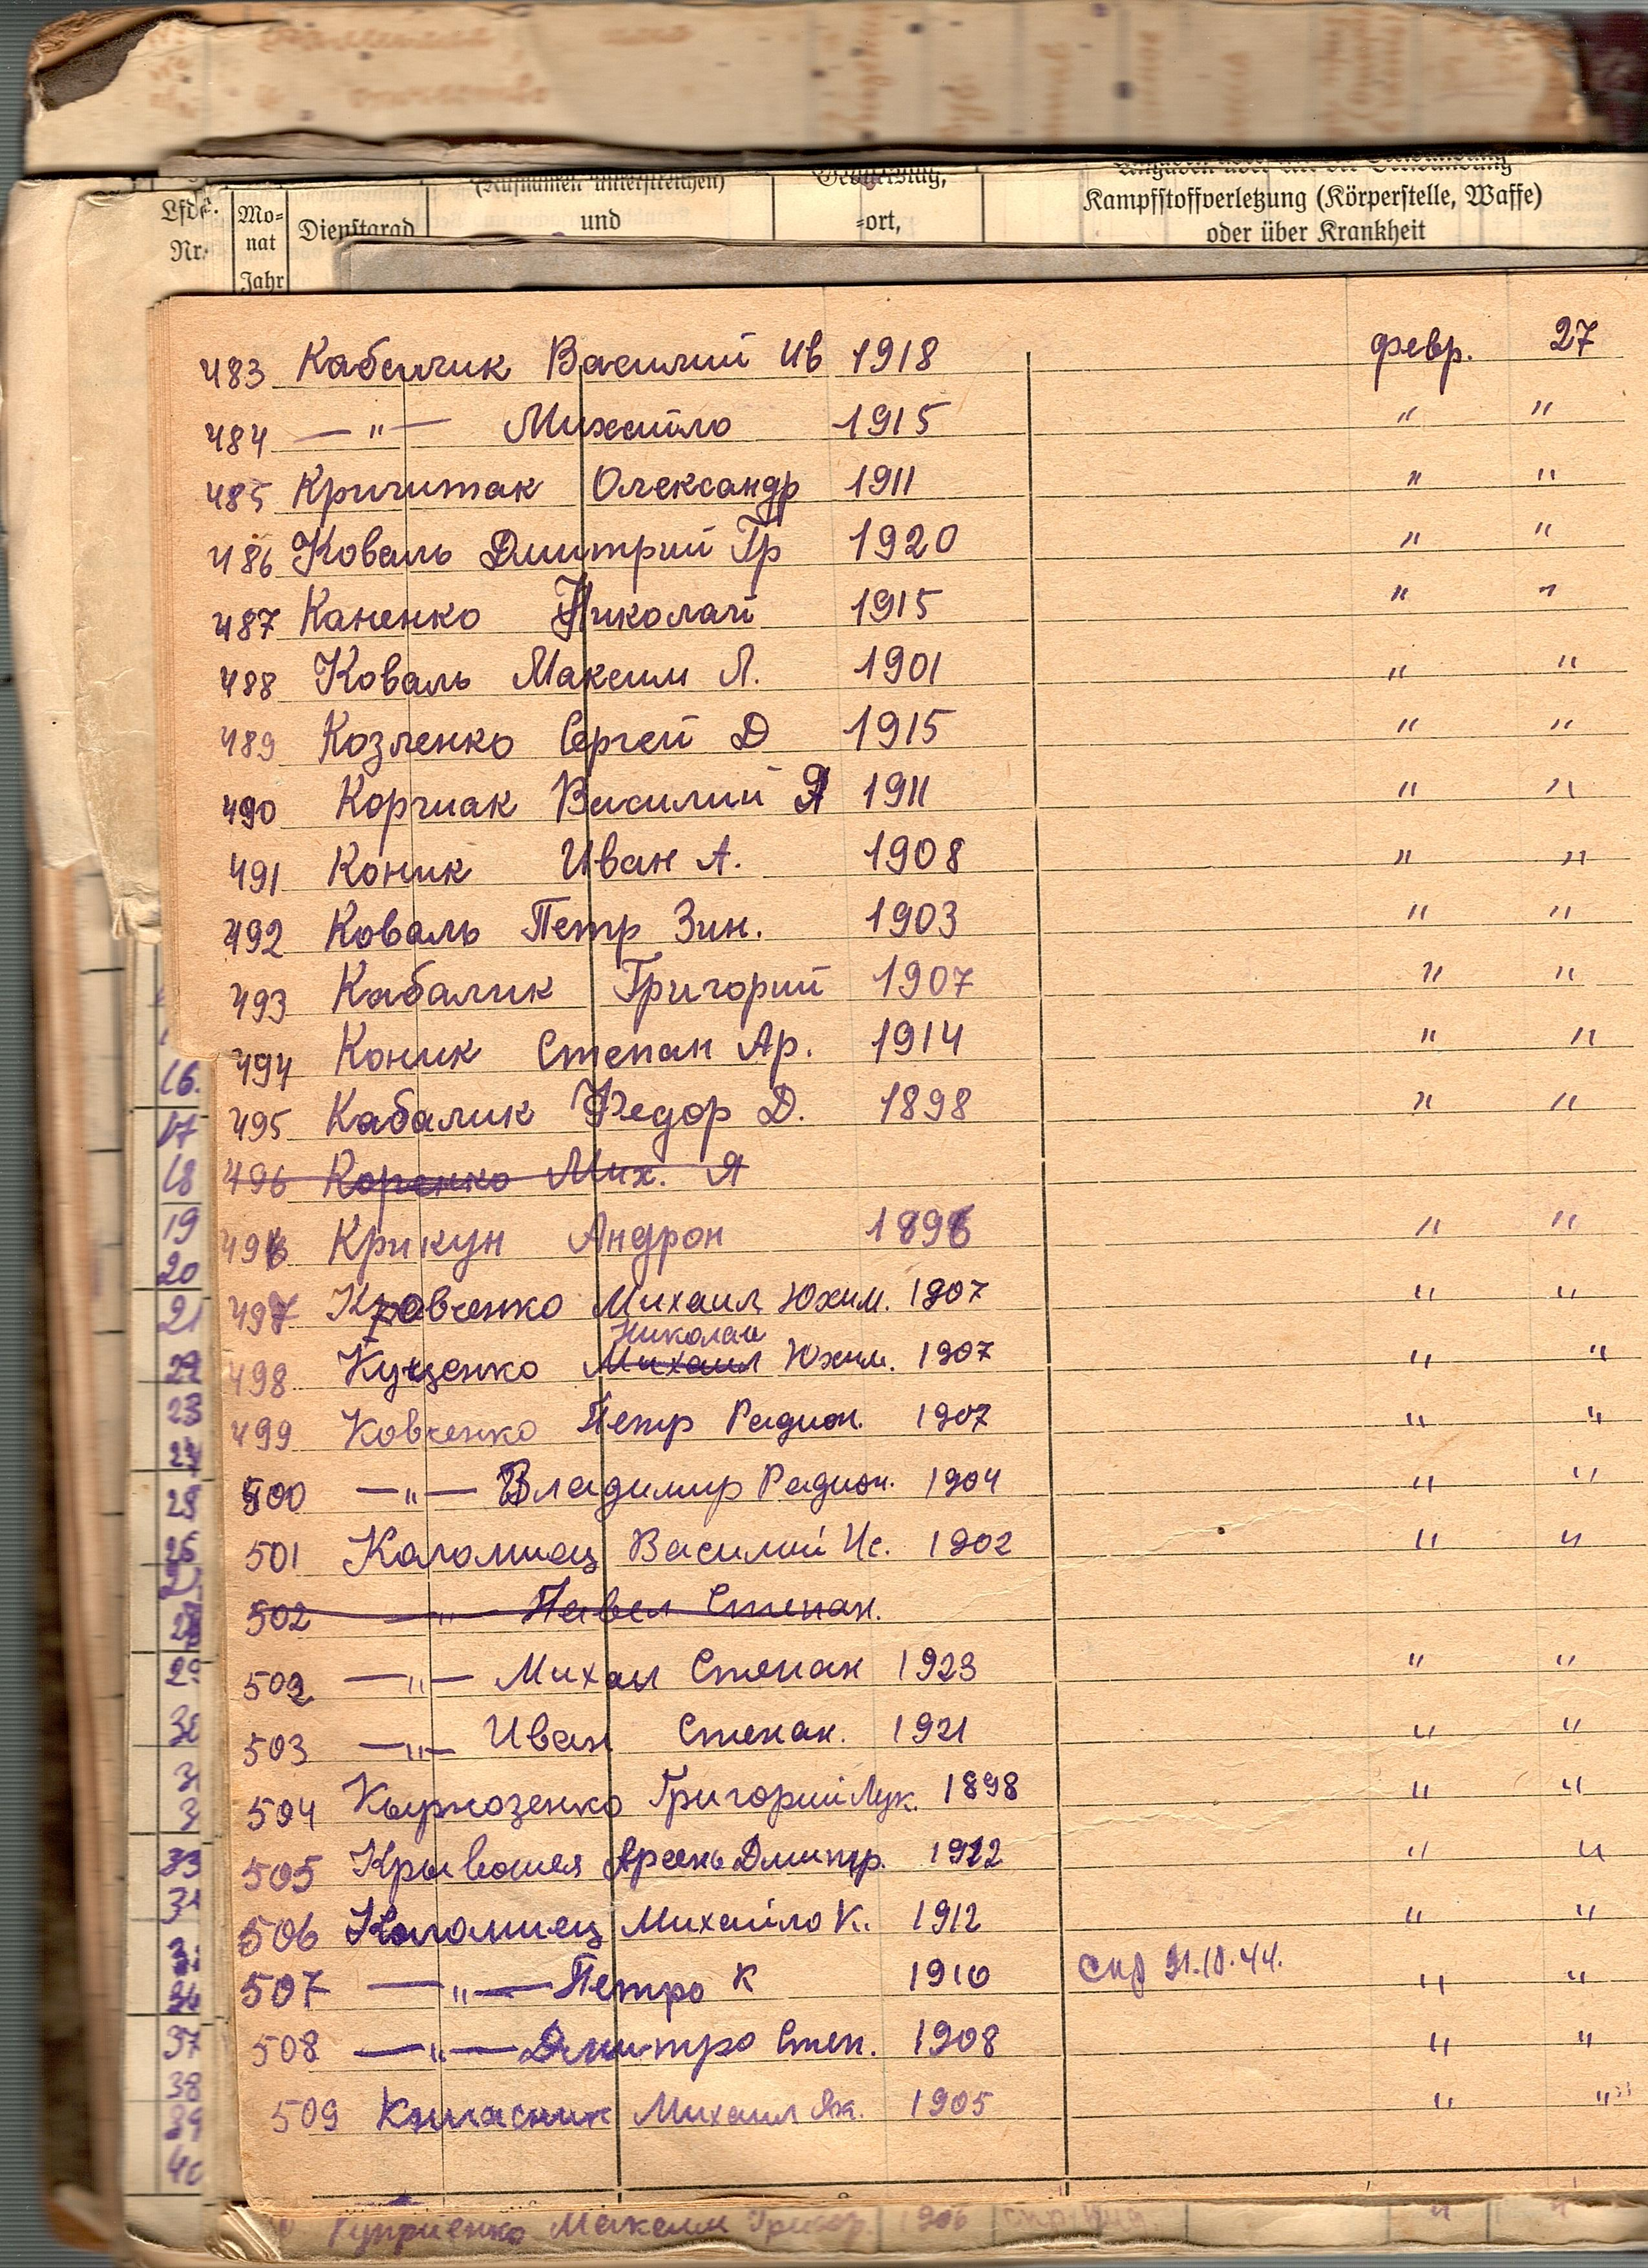 (Rufnamen unterstreichen)
Lfde. Nr.
Mo-
nat
Jahr
Dienstgrad
und
-ort,
Kampfstoffverletzung (Körperstelle, Waffe)
oder über Krankheit
483 Кабалик Василий Ив 1918 февр. 27
484 —"— Михайло 1915 " "
485 Кричитак Олександр 1911 " "
486 Коваль Дмитрий Гр 1920 " "
487 Каненко Николай 1915 " "
488 Коваль Максим Л. 1901 " "
489 Козленко Сергей Д 1915 " "
490 Корчиак Василий Я 1911 " "
491 Коник Иван А. 1908 " "
492 Коваль Петр Зин. 1903 " "
493 Кабалик Григорий 1907 " "
494 Коник Степан Ар. 1914 " "
495 Кабалик Федор Д. 1898 " "
496 Коренко Мих. Я
496 Крикун Андрон 1896 " "
497 Кравченко Михаил Юхим. 1907 " "
Николай
498 Куценко Михаил Юхим. 1907 " "
499 Ковченко Петр Радион. 1907 " "
500 —"— Владимир Радион. 1904 " "
501 Коломиец Василий Ис. 1902 " "
502 —"— Павел Степан.
502 —"— Михаил Степан 1923 " "
503 —"— Иван Степан. 1921 " "
504 Григорий Лук. 1898 " "
505 Крывошея Арсень Дмитр. 1912 " "
506 Коломиец Михайло К. 1912 " "
507 —"— Петро К 1910 " "
508 —"— Дмитро Степ. 1908 " "
509 Михаил Як. 1905 " "
16.
17
18
19
20
21
22
23
29
30
33
37
38
39
40
Куприенко Максим Григор. 1906 " "